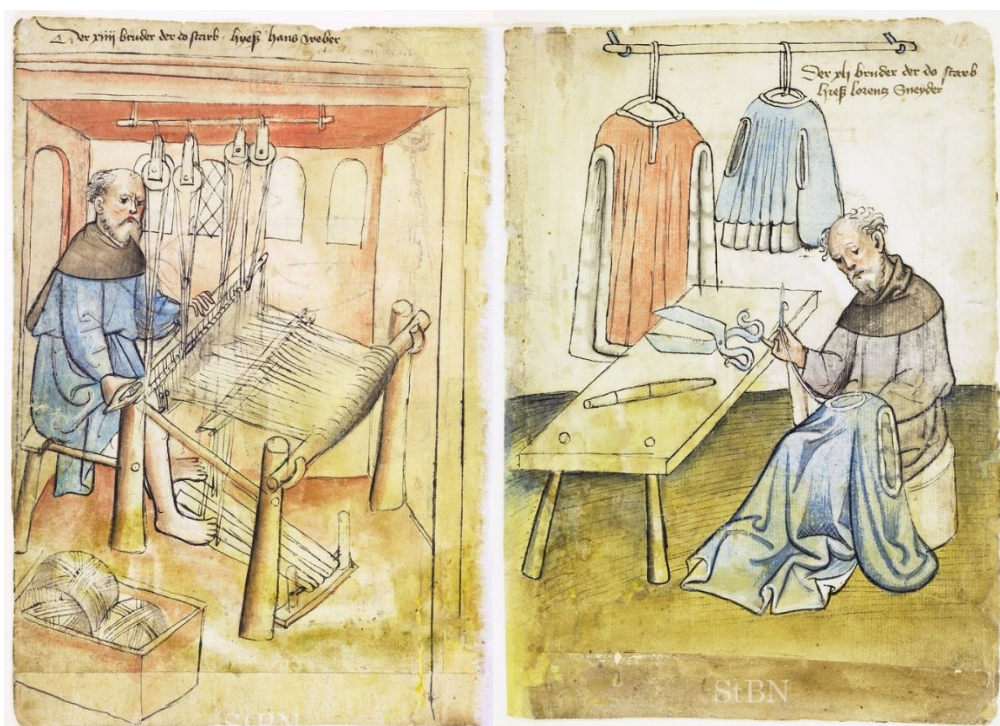 Der xiiij bruder der do starb hyeß hans weber
Der xlj bruder der do starb
hieß lorentz Sneyder
StBN
StBN